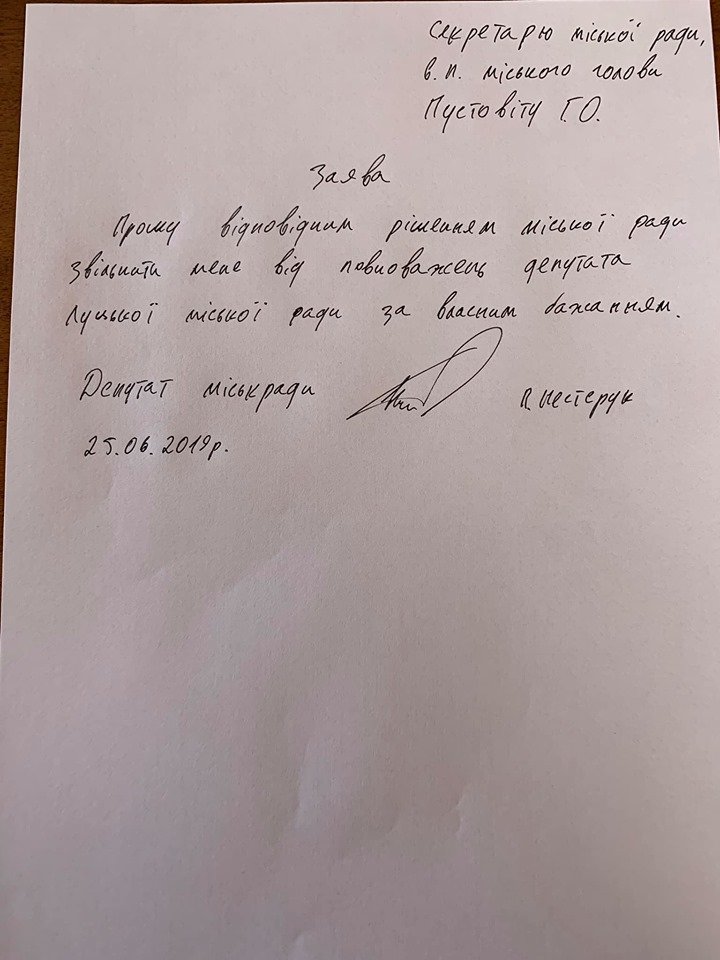 Секретарю міської ради,
в.п. міського голови
Пустовіту Г.О.
Заява
Прошу відповідним рішенням міської ради
звільнити мене від повноважень депутата
Луцької міської ради за власним бажанням.
Депутат міськради П. Нестерук
25.06.2019р.